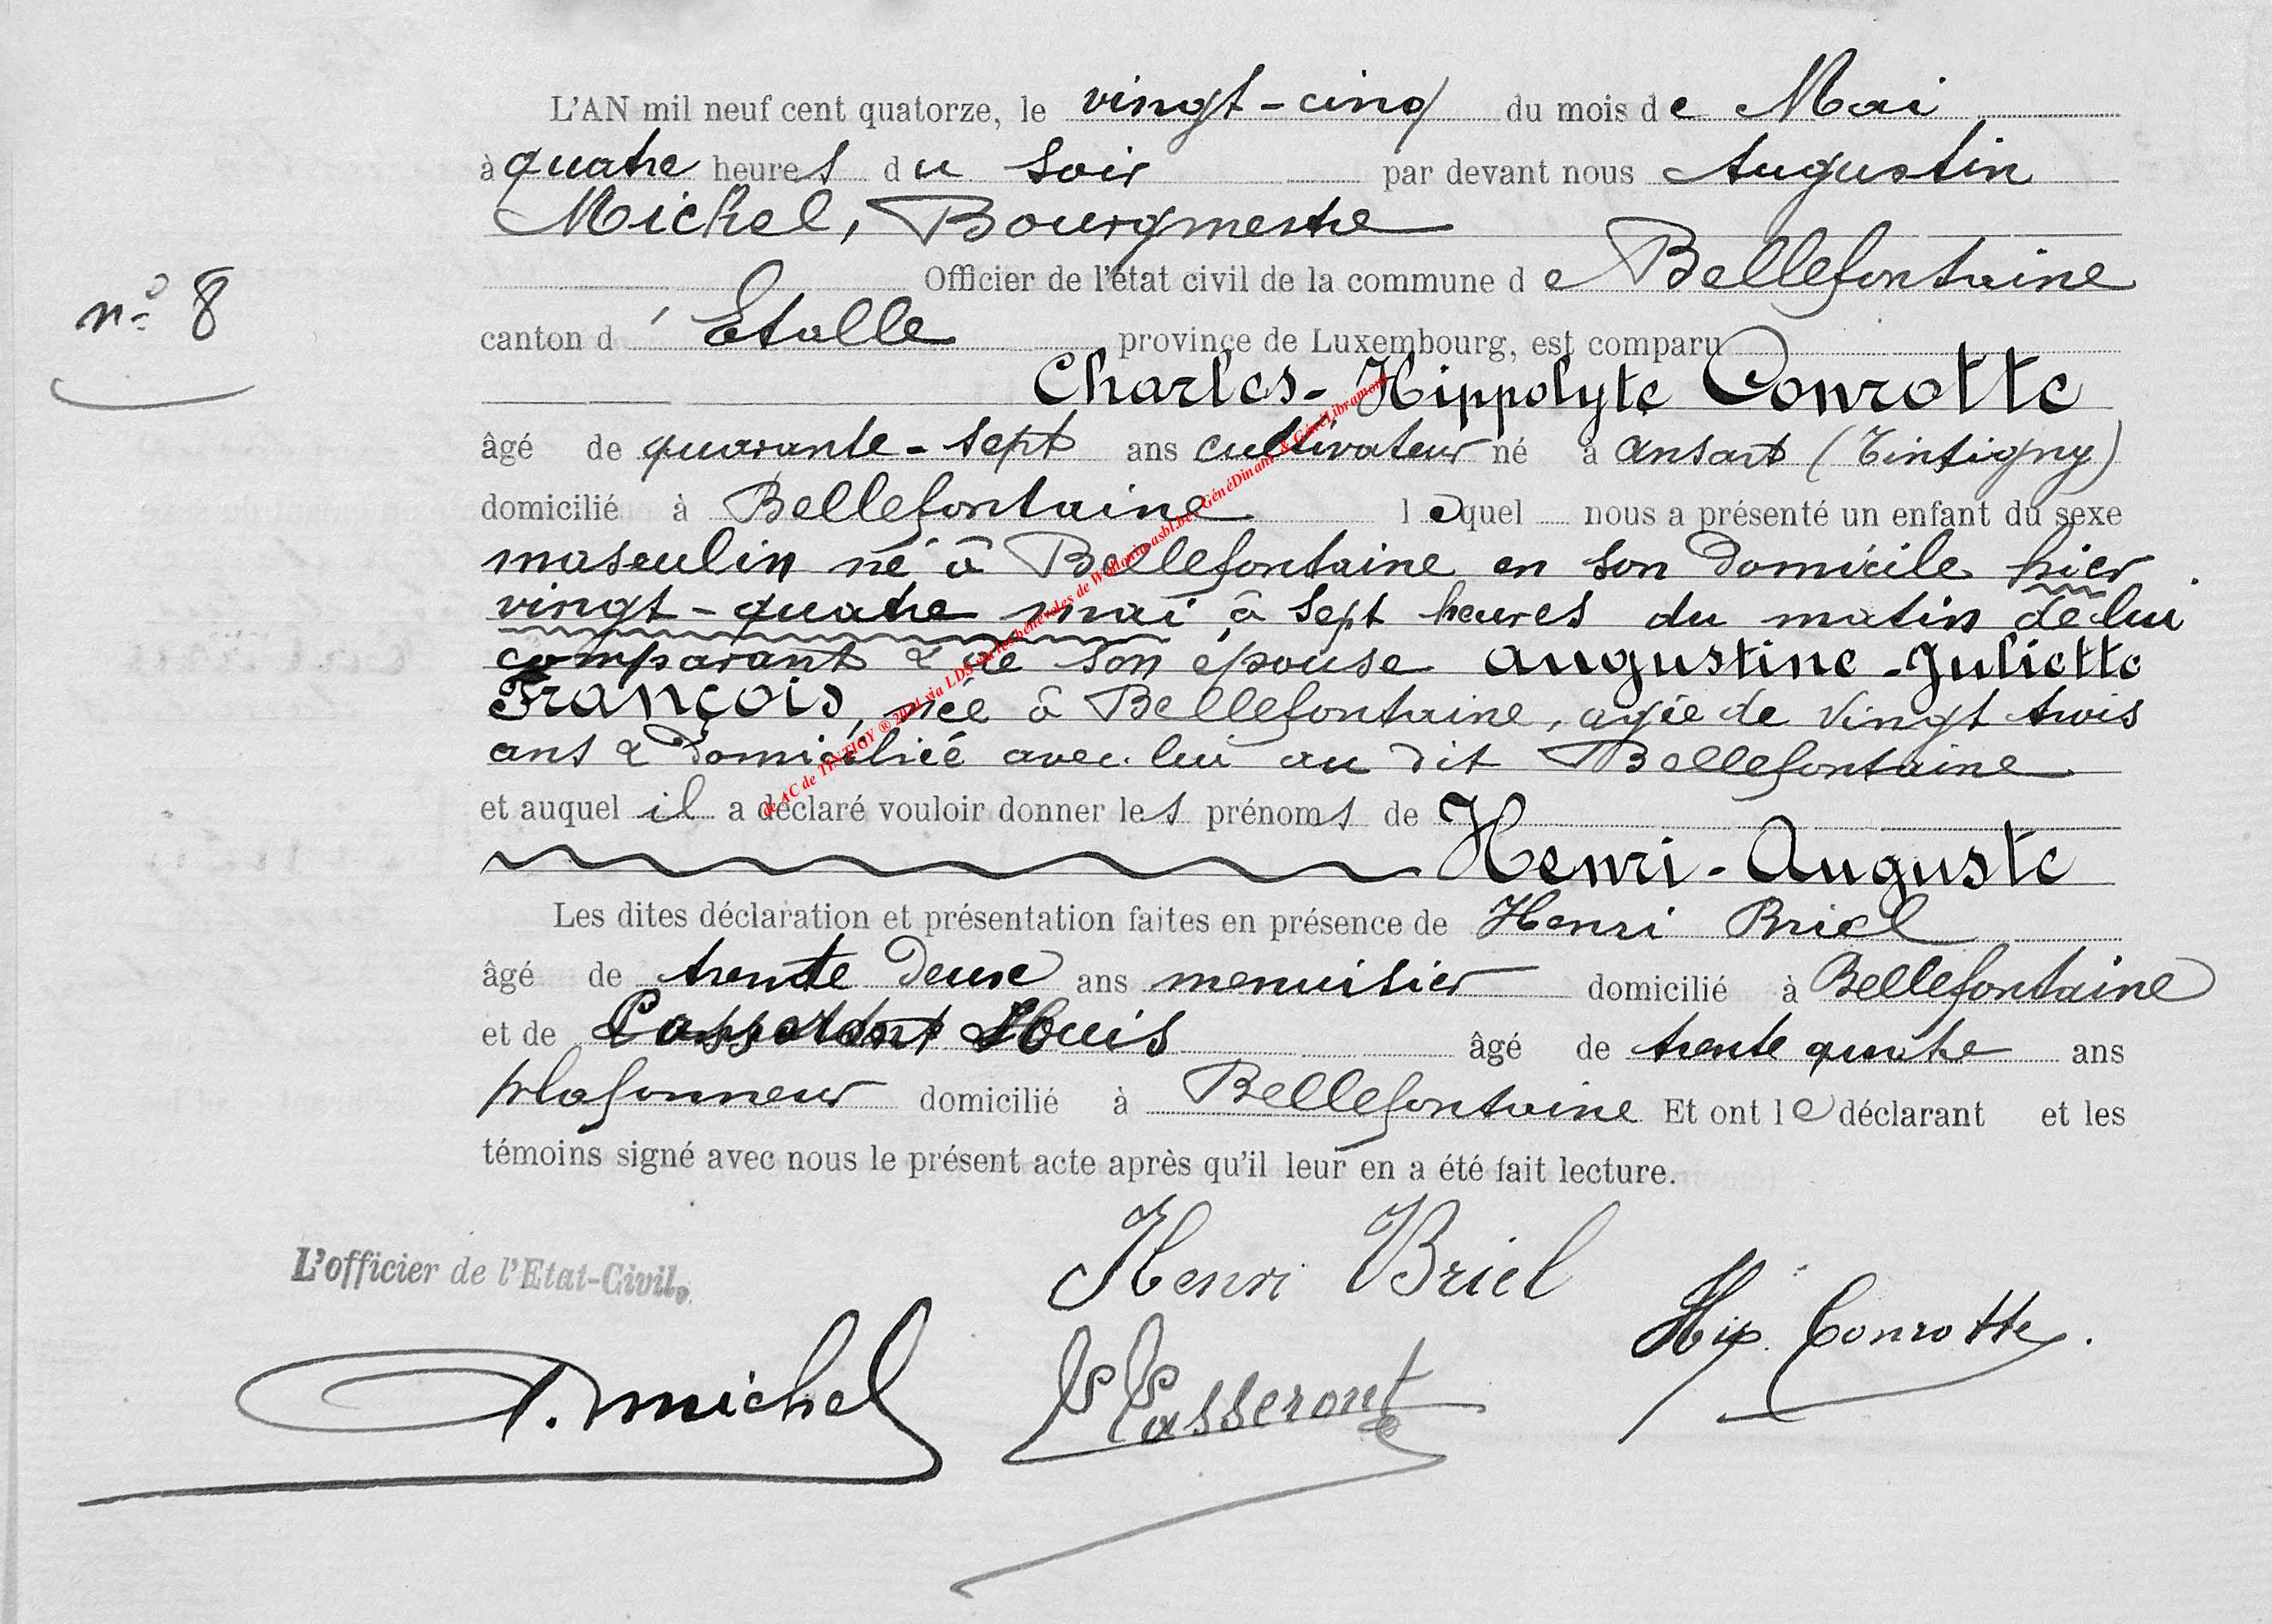 L'AN mil neuf cent quatorze, le vingt-cinq du mois de Mai
à quatre heures du soir par devant nous Augustin
Michel, Bourgmestre
Officier de l'état civil de la commune de Bellefontaine
n° 8
canton d'Etalle province de Luxembourg, est comparu
Charles-Hippolyte Conrotte
âgé de quarante-sept ans cultivateur né à Ansart (Tintigny)
domicilié à Bellefontaine lequel nous a présenté un enfant du sexe
masculin né à Bellefontaine en son domicile hier
vingt-quatre mai à sept heures du matin de lui
comparant & de son épouse Augustine-Juliette
François, née à Bellefontaine, agée de vingt trois
ans & domiciliée avec lui au dit Bellefontaine
et auquel il a déclaré vouloir donner les prénoms de
Henri-Auguste
Les dites déclaration et présentation faites en présence de Henri Briel
âgé de trente deux ans menuisier domicilié à Bellefontaine
et de Louis âgé de trente quatre ans
plafonneur domicilié à Bellefontaine Et ont le déclarant et les
témoins signé avec nous le présent acte après qu'il leur en a été fait lecture.
L'officier de l'Etat-Civil,
Henri Briel
Hip. Conrotte.
A. Michel
L Casseront
de AC de TINTIGY ® via LDS les bénévoles de GénéDinant & GénéLibramont